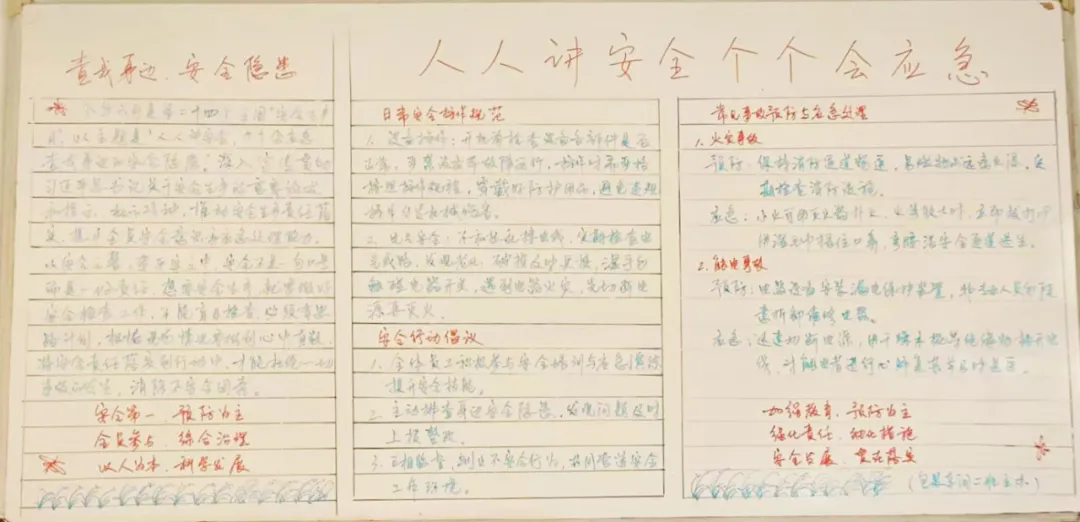 查我身边、安全隐患
人人讲安全个个会应急
今年六月是第二十四个全国"安全生产
月",以主题是"人人讲安全,个个会应急
查找身边的安全隐患"。深入
习近平总书记关于安全生产的重要论述
和指示、批示精神,推动安全生产责任落
实,提升全员安全意识和应急处理能力。
以安全为
而是一份责任,想要安全生产,就要做好
安全检查工作,不能盲目检查,必须有思
路计划,
将安全责任落实到行动中,才能杜绝一切
事故的发生,消除不安全因素。
安全第一、预防为主
全员参与、综合治理
以人为本、科学发展
日常安全操作规范
1、设备操作:开机前检查设备各部件是否
正常,严禁设备带故障运行,操作时需严格
按照操作规程,穿戴好防护用品,避免违规
操作引发机械伤害。
2、用电安全:不私拉乱接电线,定期检查用
电线路,发现老化、破损及时更换,湿手勿
触碰电器开关,遇到电器火灾,先切断电
源再灭火。
安全行动倡议
1、全体员工积极参与安全培训与应急演练
提升安全技能。
2、主动排查身边安全隐患、发现问题及时
上报整改。
3、互相监督、制止不安全行为,共同营造安全
工作环境。
常见事故预防与应急处理
1、火灾事故
预防:保持消防通道畅通,易燃物品远离火源,定
期检查消防设施。
应急:小火可用灭火器扑灭,火势较大时,立即拨打119
用湿毛巾捂住口鼻,弯腰沿安全通道逃生。
2、触电事故
预防:电器设备安装漏电保护装置,非专业人员勿随
意拆卸维修电器。
应急:迅速切断电源,用干燥木棍等绝缘物挑开电
线,对触电者进行心肺复苏并及时送医。
加强教育、预防为主
强化责任、细化措施
安全发展、贯击落实
(包装车间二班主办)